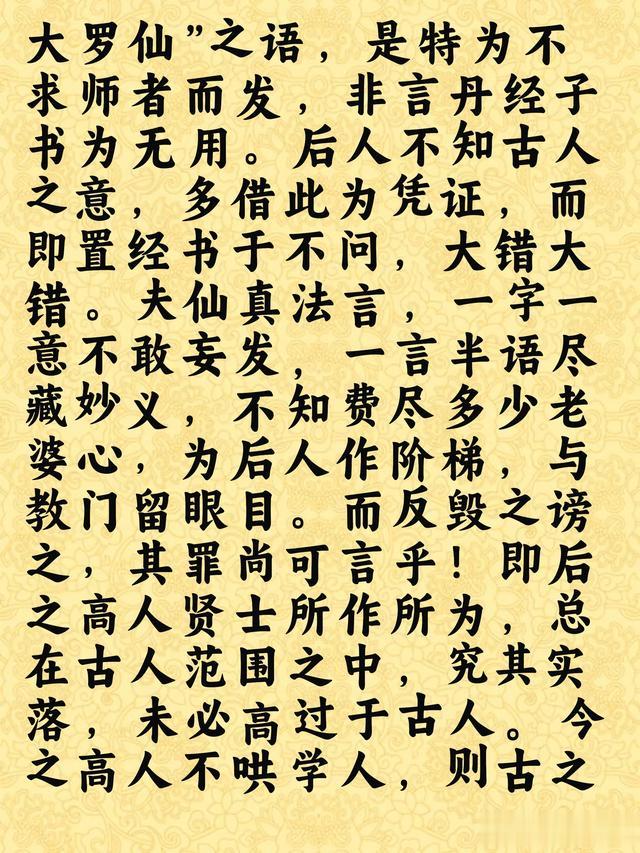 大罗仙”之语，是特为不
求师者而发，非言丹经子
书为无用。后人不知古人
之意，多借此为凭证，而
即置经书于不问，大错大
错。夫仙真法言，一字一
意不敢妄发，一言半语尽
藏妙义，不知费尽多少老
婆心，为后人作阶梯，与
教门留眼目。而反毁之谤
之，其罪尚可言乎！即后
之高人贤士所作所为，总
在古人范围之中，究其实
落，未必高过于古人。今
之高人不哄学人，则古之